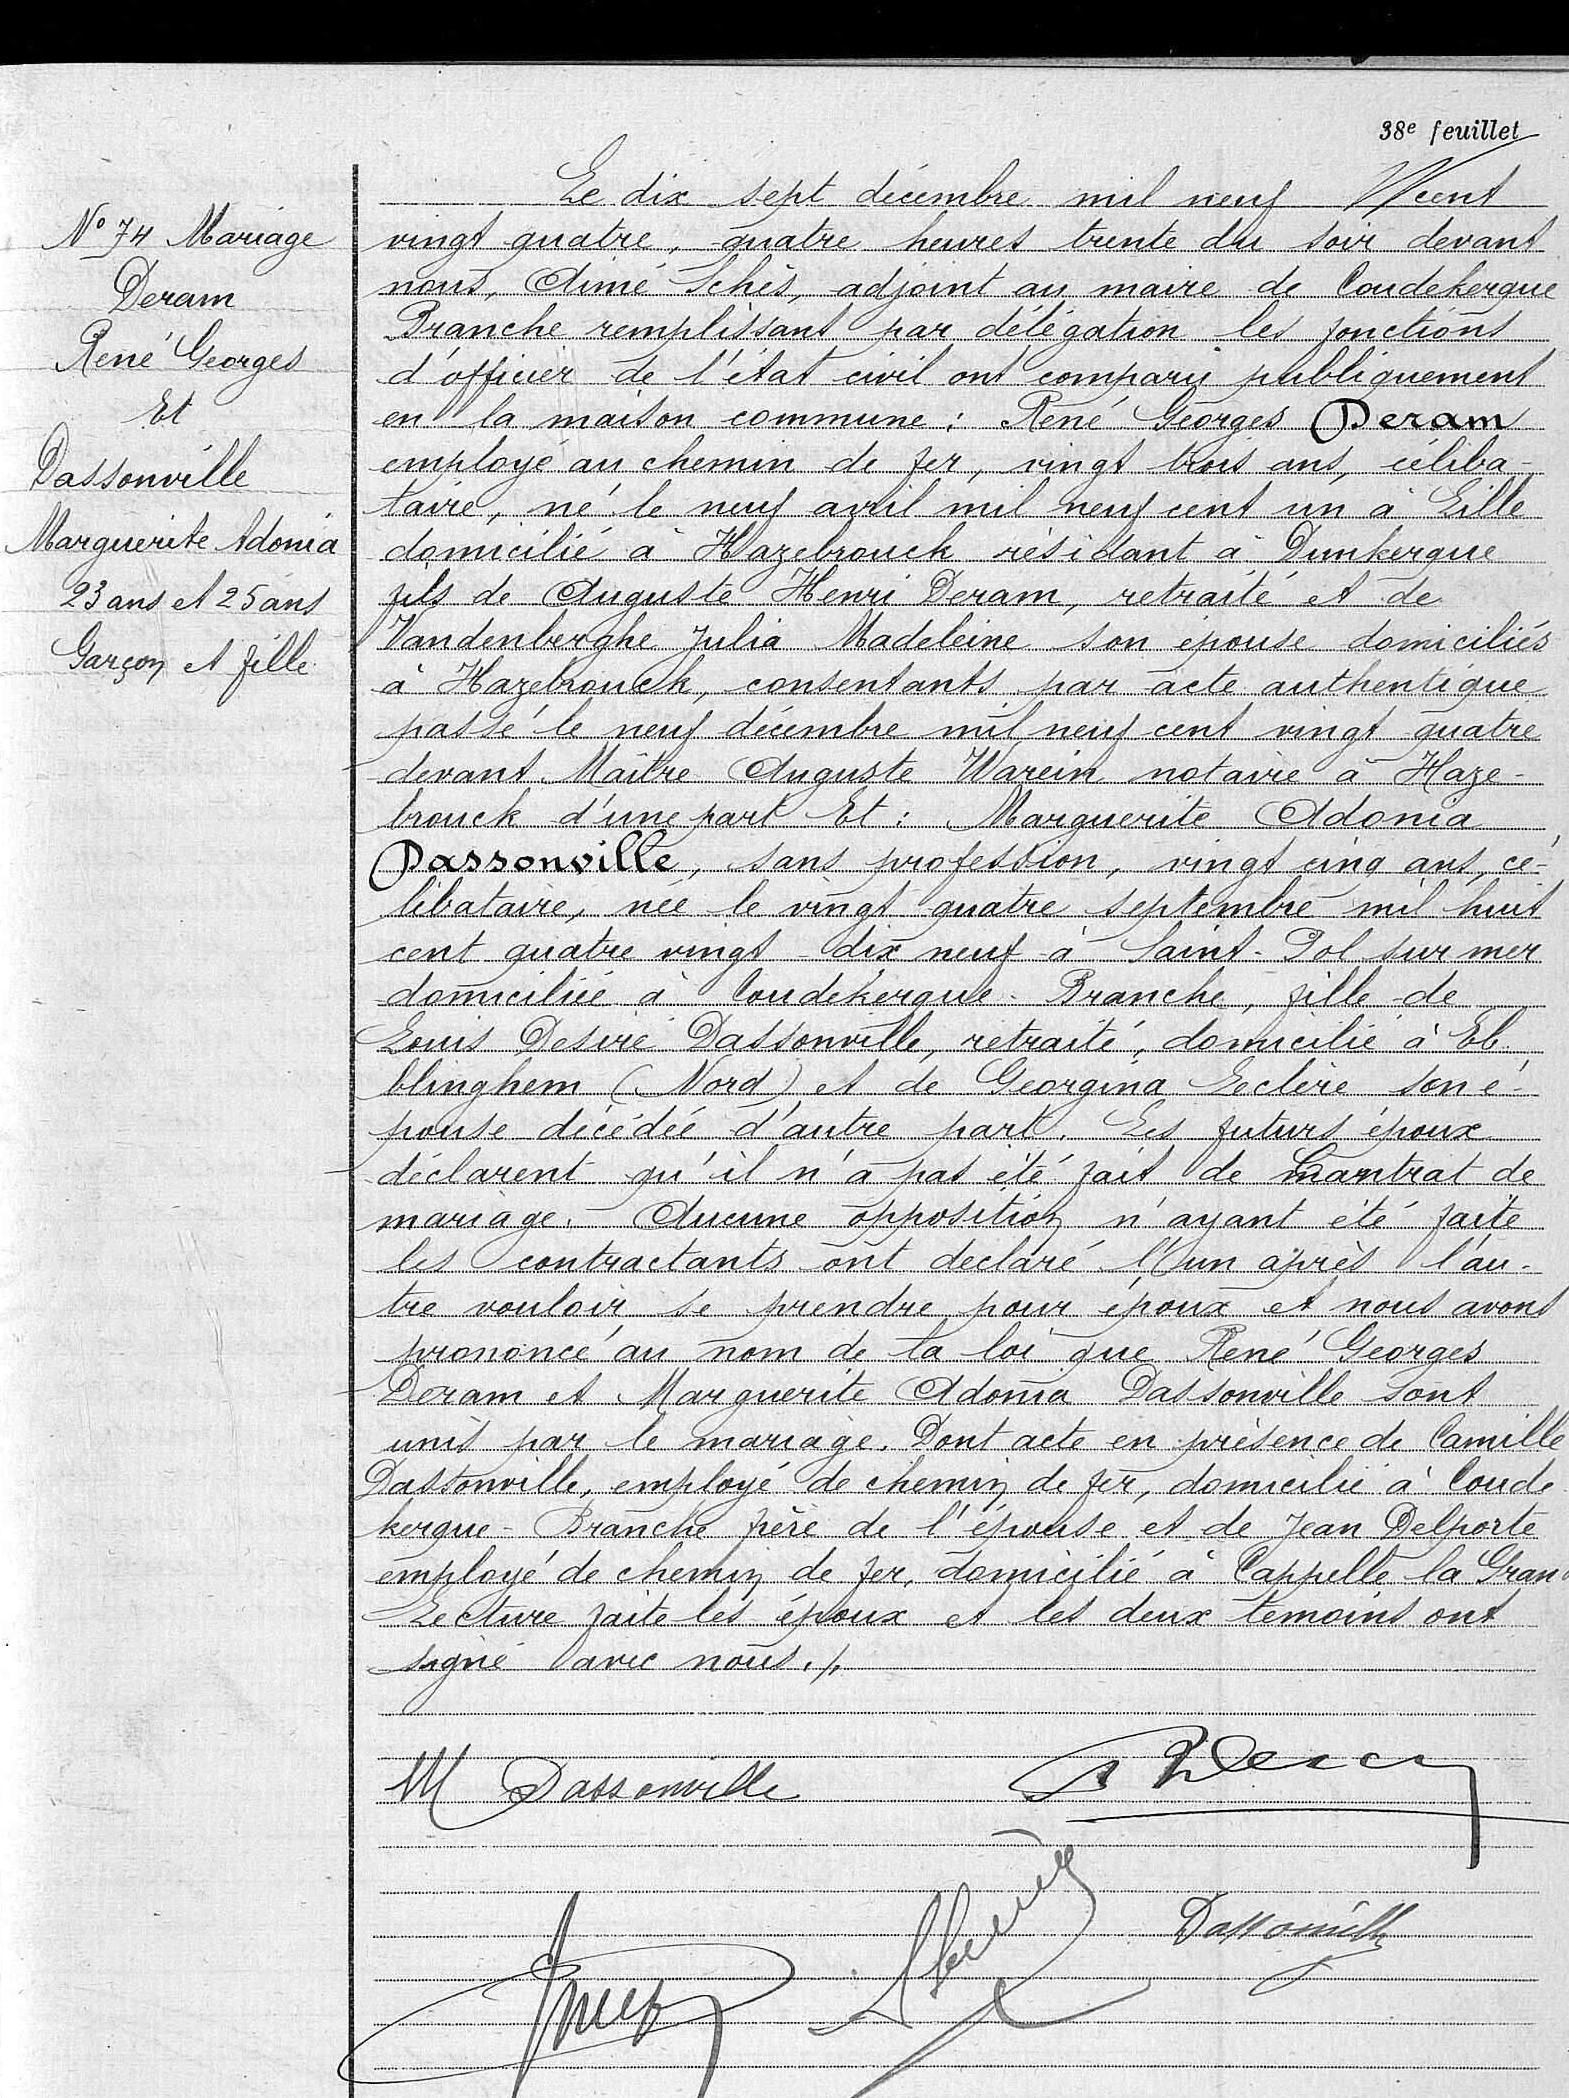 38e feuillet
N° 74 Mariage
Deram
René Georges
Et
Dassonville
Marguerite Adonia
23 ans et 25 ans
Garçon et fille
Le dix sept décembre mil neuf cent
vingt quatre, quatre heures trente du soir devant
nous, Aimé Schès, adjoint au maire de Coudekerque
Branche remplissant par délégation les fonctions
d'officier de l'état civil ont comparu publiquement
en la maison commune : René Georges Deram
employé au chemin de fer, vingt trois ans, céliba-
taire, né le neuf avril mil neuf cent un à Lille
domicilié à Hazebrouck résidant à Dunkerque
fils de Auguste Henri Deram, retraité et de
Vandenberghe Julia Madeleine son épouse domiciliés
à Hazebrouck, consentants par acte authentique
passé le neuf décembre mil neuf cent vingt quatre
devant Maître Auguste Warein notaire à Haze-
brouck d'une part Et : Marguerite Adonia
Dassonville, sans profession, vingt cinq ans, cé-
libataire, née le vingt quatre septembre mil huit
cent quatre vingt - dix neuf à Saint-Pol sur mer
domiciliée à Coudekerque-Branche, fille de
Louis Desiré Dassonville, retraité, domicilié à Eb
blinghem (Nord) et de Georgina Leclère son é-
pouse décédée d'autre part. Les futurs époux
déclarent qu'il n'a pas été fait de contrat de
mariage. Aucune opposition n'ayant été faite
les contractants ont declaré l'un après l'au-
tre vouloir se prendre pour époux et nous avons
prononcé au nom de la loi que René Georges
Deram et Marguerite Adonia Dassonville sont
unis par le mariage. Dont acte en présence de Camille
Dassonville, employé de chemin de fer, domicilié à Coude
kerque-Branche frère de l'épouse et de Jean Delporte
employé de chemin de fer, domicilié à Cappelle la Gran
Lecture faite les époux et les deux temoins ont
signé avec nous ./.
M Dassonville
R Deram
Dassonville